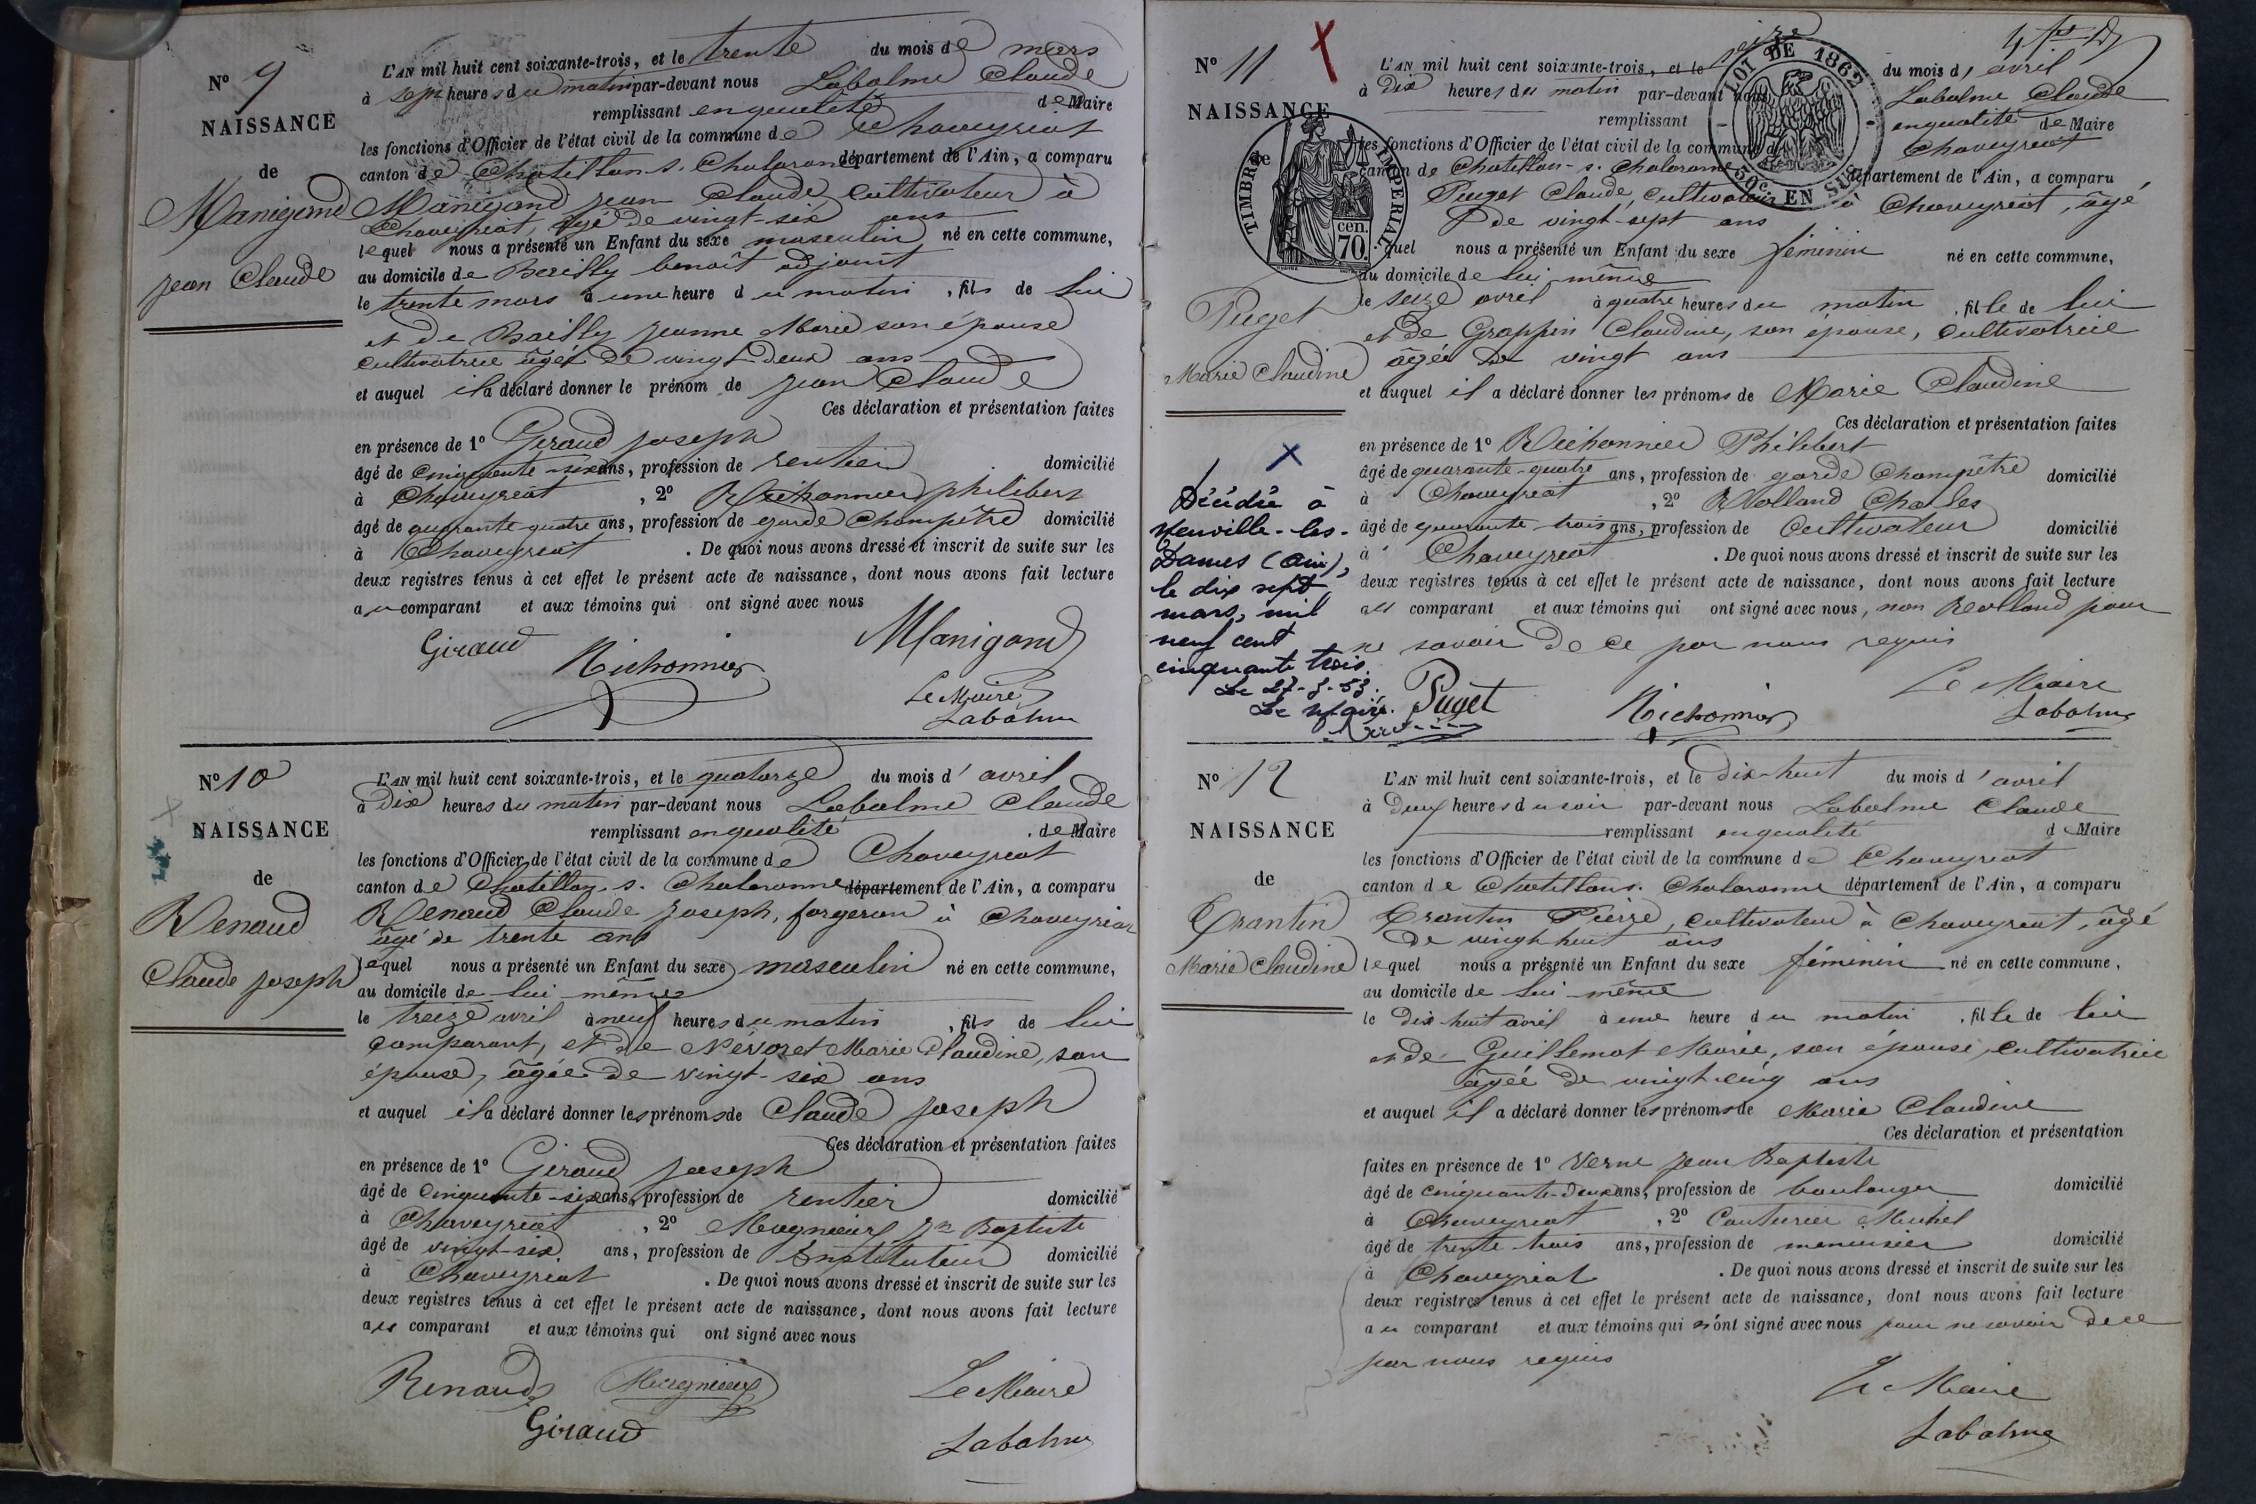 N° 9
NAISSANCE
de
Manigand
Jean Claude
L'AN mil huit cent soixante-trois, et le trente du mois de mars
à sept heures du matin par-devant nous Labalme Claude
remplissant en qualité de Maire
les fonctions d'Officier de l'état civil de la commune de Chaveyriat
canton de Chatillon s. Chalaronne département de l'Ain, a comparu
Manigand Jean Claude, cultivateur à
Chaveyriat, âgé de vingt-six ans
lequel nous a présenté un Enfant du sexe masculin né en cette commune,
au domicile de benoît adjoint
le trente mars à une heure du matin, fils de lui
et de Bailly Jeanne Marie son épouse
cultivatrice âgée de vingt-deux ans
et auquel il a déclaré donner le prénom de Jean Claude
Ces déclaration et présentation faites
en présence de 1° Giraud Joseph
âgé de cinquante-six ans, profession de rentier domicilié
à Chaveyriat, 2° Richonnier philibert
âgé de quarante-quatre ans, profession de garde Champêtre domicilié
à Chaveyriat. De quoi nous avons dressé et inscrit de suite sur les
deux registres tenus à cet effet le présent acte de naissance, dont nous avons fait lecture
au comparant et aux témoins qui ont signé avec nous
Giraud Richonnier Manigand
Le Maire
Labalme
N° 10
NAISSANCE
de
Renaud
Claude Joseph
L'AN mil huit cent soixante-trois, et le quatorze du mois d'avril
à Dix heures du matin par-devant nous Labalme Claude
remplissant en qualité de Maire
les fonctions d'Officier de l'état civil de la commune de Chaveyriat
canton de Chatillon s. Chalaronne département de l'Ain, a comparu
Renaud Claude Joseph, forgeron à Chaveyriat
âgé de trente ans
lequel nous a présenté un Enfant du sexe masculin né en cette commune,
au domicile de lui même
le treize avril à neuf heures du matin, fils de lui
comparant, et de Névoret Marie Claudine, son
épouse, âgée de vingt-six ans
et auquel il a déclaré donner les prénoms de Claude Joseph
Ces déclaration et présentation faites
en présence de 1° Giraud Joseph
âgé de cinquante-six ans, profession de rentier domicilié
à Chaveyriat, 2° Magnieux Jn Baptiste
âgé de vingt-six ans, profession de Instituteur domicilié
à Chaveyriat. De quoi nous avons dressé et inscrit de suite sur les
deux registres tenus à cet effet le présent acte de naissance, dont nous avons fait lecture
au comparant et aux témoins qui ont signé avec nous
Renaud Magnieux Le Maire
Giraud Labalme
N° 11
NAISSANCE
de
Puget
Marie Claudine
Décédée à
Neuville-les-
Dames (Ain),
le dix sept
mars, mil
neuf cent
cinquante trois.
Le 27-3-53.
Le Maire.
TIMBRE IMPERIAL
70 cen.
LOI DE 1862
50c. EN SUS
L'AN mil huit cent soixante-trois, et le seize du mois d'avril
à Dix heures du matin par-devant nous Labalme Claude
remplissant en qualité de Maire
les fonctions d'Officier de l'état civil de la commune de Chaveyriat
canton de Chatillon-s. Chalaronne département de l'Ain, a comparu
Puget Claude, cultivateur à Chaveyriat, âgé
de vingt-sept ans
lequel nous a présenté un Enfant du sexe féminin né en cette commune,
au domicile de lui même
le seize avril à quatre heures du matin, fille de lui
et de Grappin Claudine, son épouse, cultivatrice
âgée de vingt ans
et auquel il a déclaré donner les prénoms de Marie Claudine
Ces déclaration et présentation faites
en présence de 1° Richonnier Philibert
âgé de quarante-quatre ans, profession de garde Champêtre domicilié
à Chaveyriat, 2° Rolland Charles
âgé de quarante-trois ans, profession de Cultivateur domicilié
à Chaveyriat. De quoi nous avons dressé et inscrit de suite sur les
deux registres tenus à cet effet le présent acte de naissance, dont nous avons fait lecture
au comparant et aux témoins qui ont signé avec nous, non Rolland pour
ne savoir de ce par nous requis
Puget Richonnier Le Maire
Labalme
N° 12
NAISSANCE
de
Trantin
Marie Claudine
L'AN mil huit cent soixante-trois, et le dix-huit du mois d'avril
à deux heures du soir par-devant nous Labalme Claude
remplissant en qualité de Maire
les fonctions d'Officier de l'état civil de la commune de Chaveyriat
canton de Chatillon s. Chalaronne département de l'Ain, a comparu
Trantin Pierre, cultivateur à Chaveyriat, âgé
de vingt-huit ans
lequel nous a présenté un Enfant du sexe féminin né en cette commune,
au domicile de lui même
le dix-huit avril à une heure du matin, fille de lui
et de Guillemot Marie, son épouse, cultivatrice
âgée de vingt-cinq ans
et auquel il a déclaré donner les prénoms de Marie Claudine
Ces déclaration et présentation
faites en présence de 1° Verne Jean Baptiste
âgé de cinquante-deux ans, profession de boulanger domicilié
à Chaveyriat, 2° Couturier Michel
âgé de trente trois ans, profession de menuisier domicilié
à Chaveyriat. De quoi nous avons dressé et inscrit de suite sur les
deux registres tenus à cet effet le présent acte de naissance, dont nous avons fait lecture
au comparant et aux témoins qui n'ont signé avec nous pour ne savoir de ce
par nous requis
Le Maire
Labalme